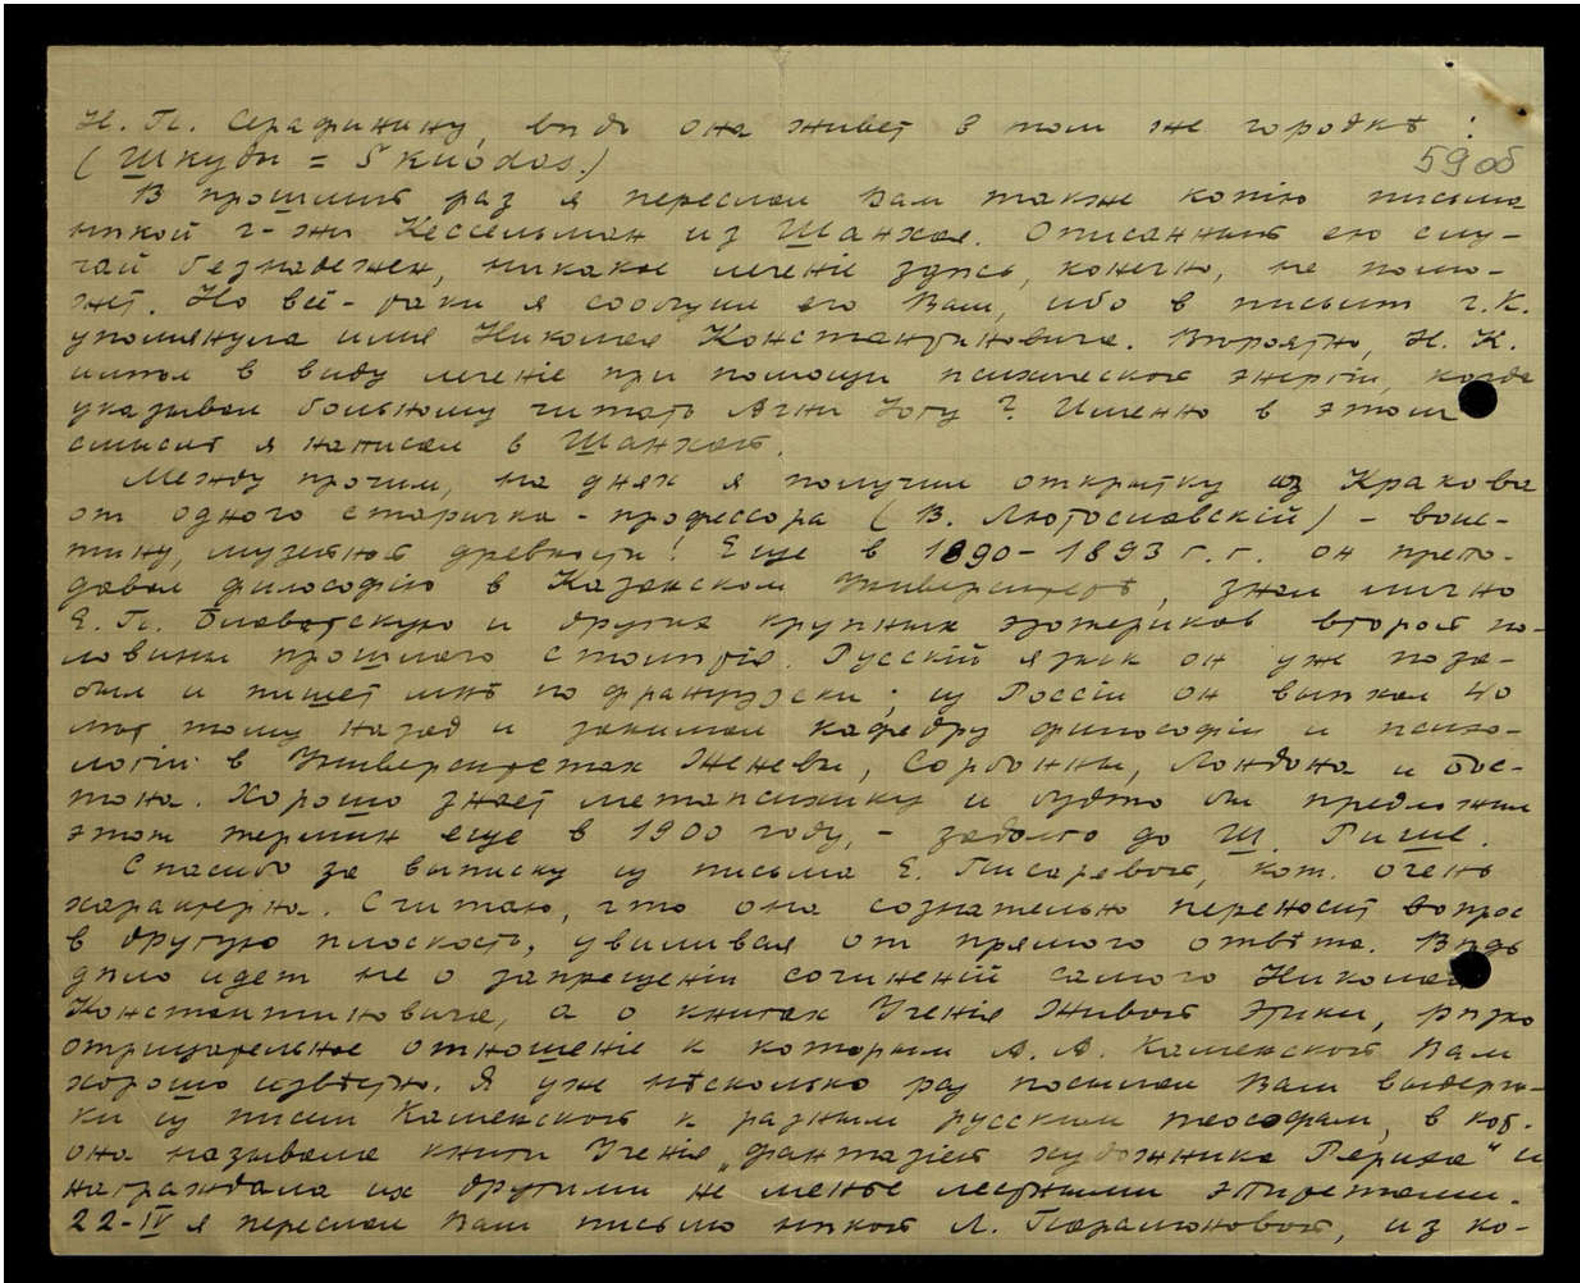 Н. П. Серафинину, вѣдь она живет в том же городкѣ:
(Шкуды = Skuodas.)
59 об
В прошлый раз я переслал Вам также копію письма
нѣкой г-жи Кессельман из Шанхая. Описанный ею слу-
чай безнадежен, никакое леченіе здѣсь, конечно, не помо-
жет. Но всё-таки я сообщил его Вам, ибо в письмѣ г. К.
упомянула имя Николая Константиновича. Вѣроятно, Н. К.
имѣл в виду леченіе при помощи психической энергіи, когда
указывал больному читать Агни Іогу? Именно в этом
смыслѣ я написал в Шанхай.
Между прочим, на днях я получил открытку из Кракова
от одного старичка-профессора (В. Лютославскій) - воис-
тину, музейной древности! Еще в 1890-1893 г.г. он препо-
давал философію в Казанском Университетѣ, знал лично
Е. П. Блаватскую и других крупных эзотериков второй по-
ловины прошлого столѣтія. Русскій язык он уже поза-
был и пишет мнѣ по французски; из Россіи он выѣхал 40
лѣт тому назад и занимал кафедру философіи и психо-
логіи в Университетах Женевы, Сорбонны, Лондона и Бос-
тона. Хорошо знает метапсихику и будто бы предложил
этот термин еще в 1900 году, - задолго до Ш. Рише.
Спасибо за выписку из письма Е. Писаревой, кот. очень
характерна. Считаю, что она сознательно переносит вопрос
в другую плоскость, увиливая от прямого отвѣта. Вѣдь
дѣло идет не о запрещеніи сочиненій самого Николая
Константиновича, а о книгах Ученія Живой Этики, рѣзко
отрицательное отношеніе к которым А. А. Каменской Вам
хорошо извѣстно. Я уже нѣсколько раз посылал Вам выдерж-
ки из писем Каменской к разным русским теософам, в кот.
она называла книги Ученія „фантазіей художника Рериха" и
награждала их другими не менѣе лестными эпитетами.
22-IV я переслал Вам письмо нѣкой Л. Парамоновой, из ко-